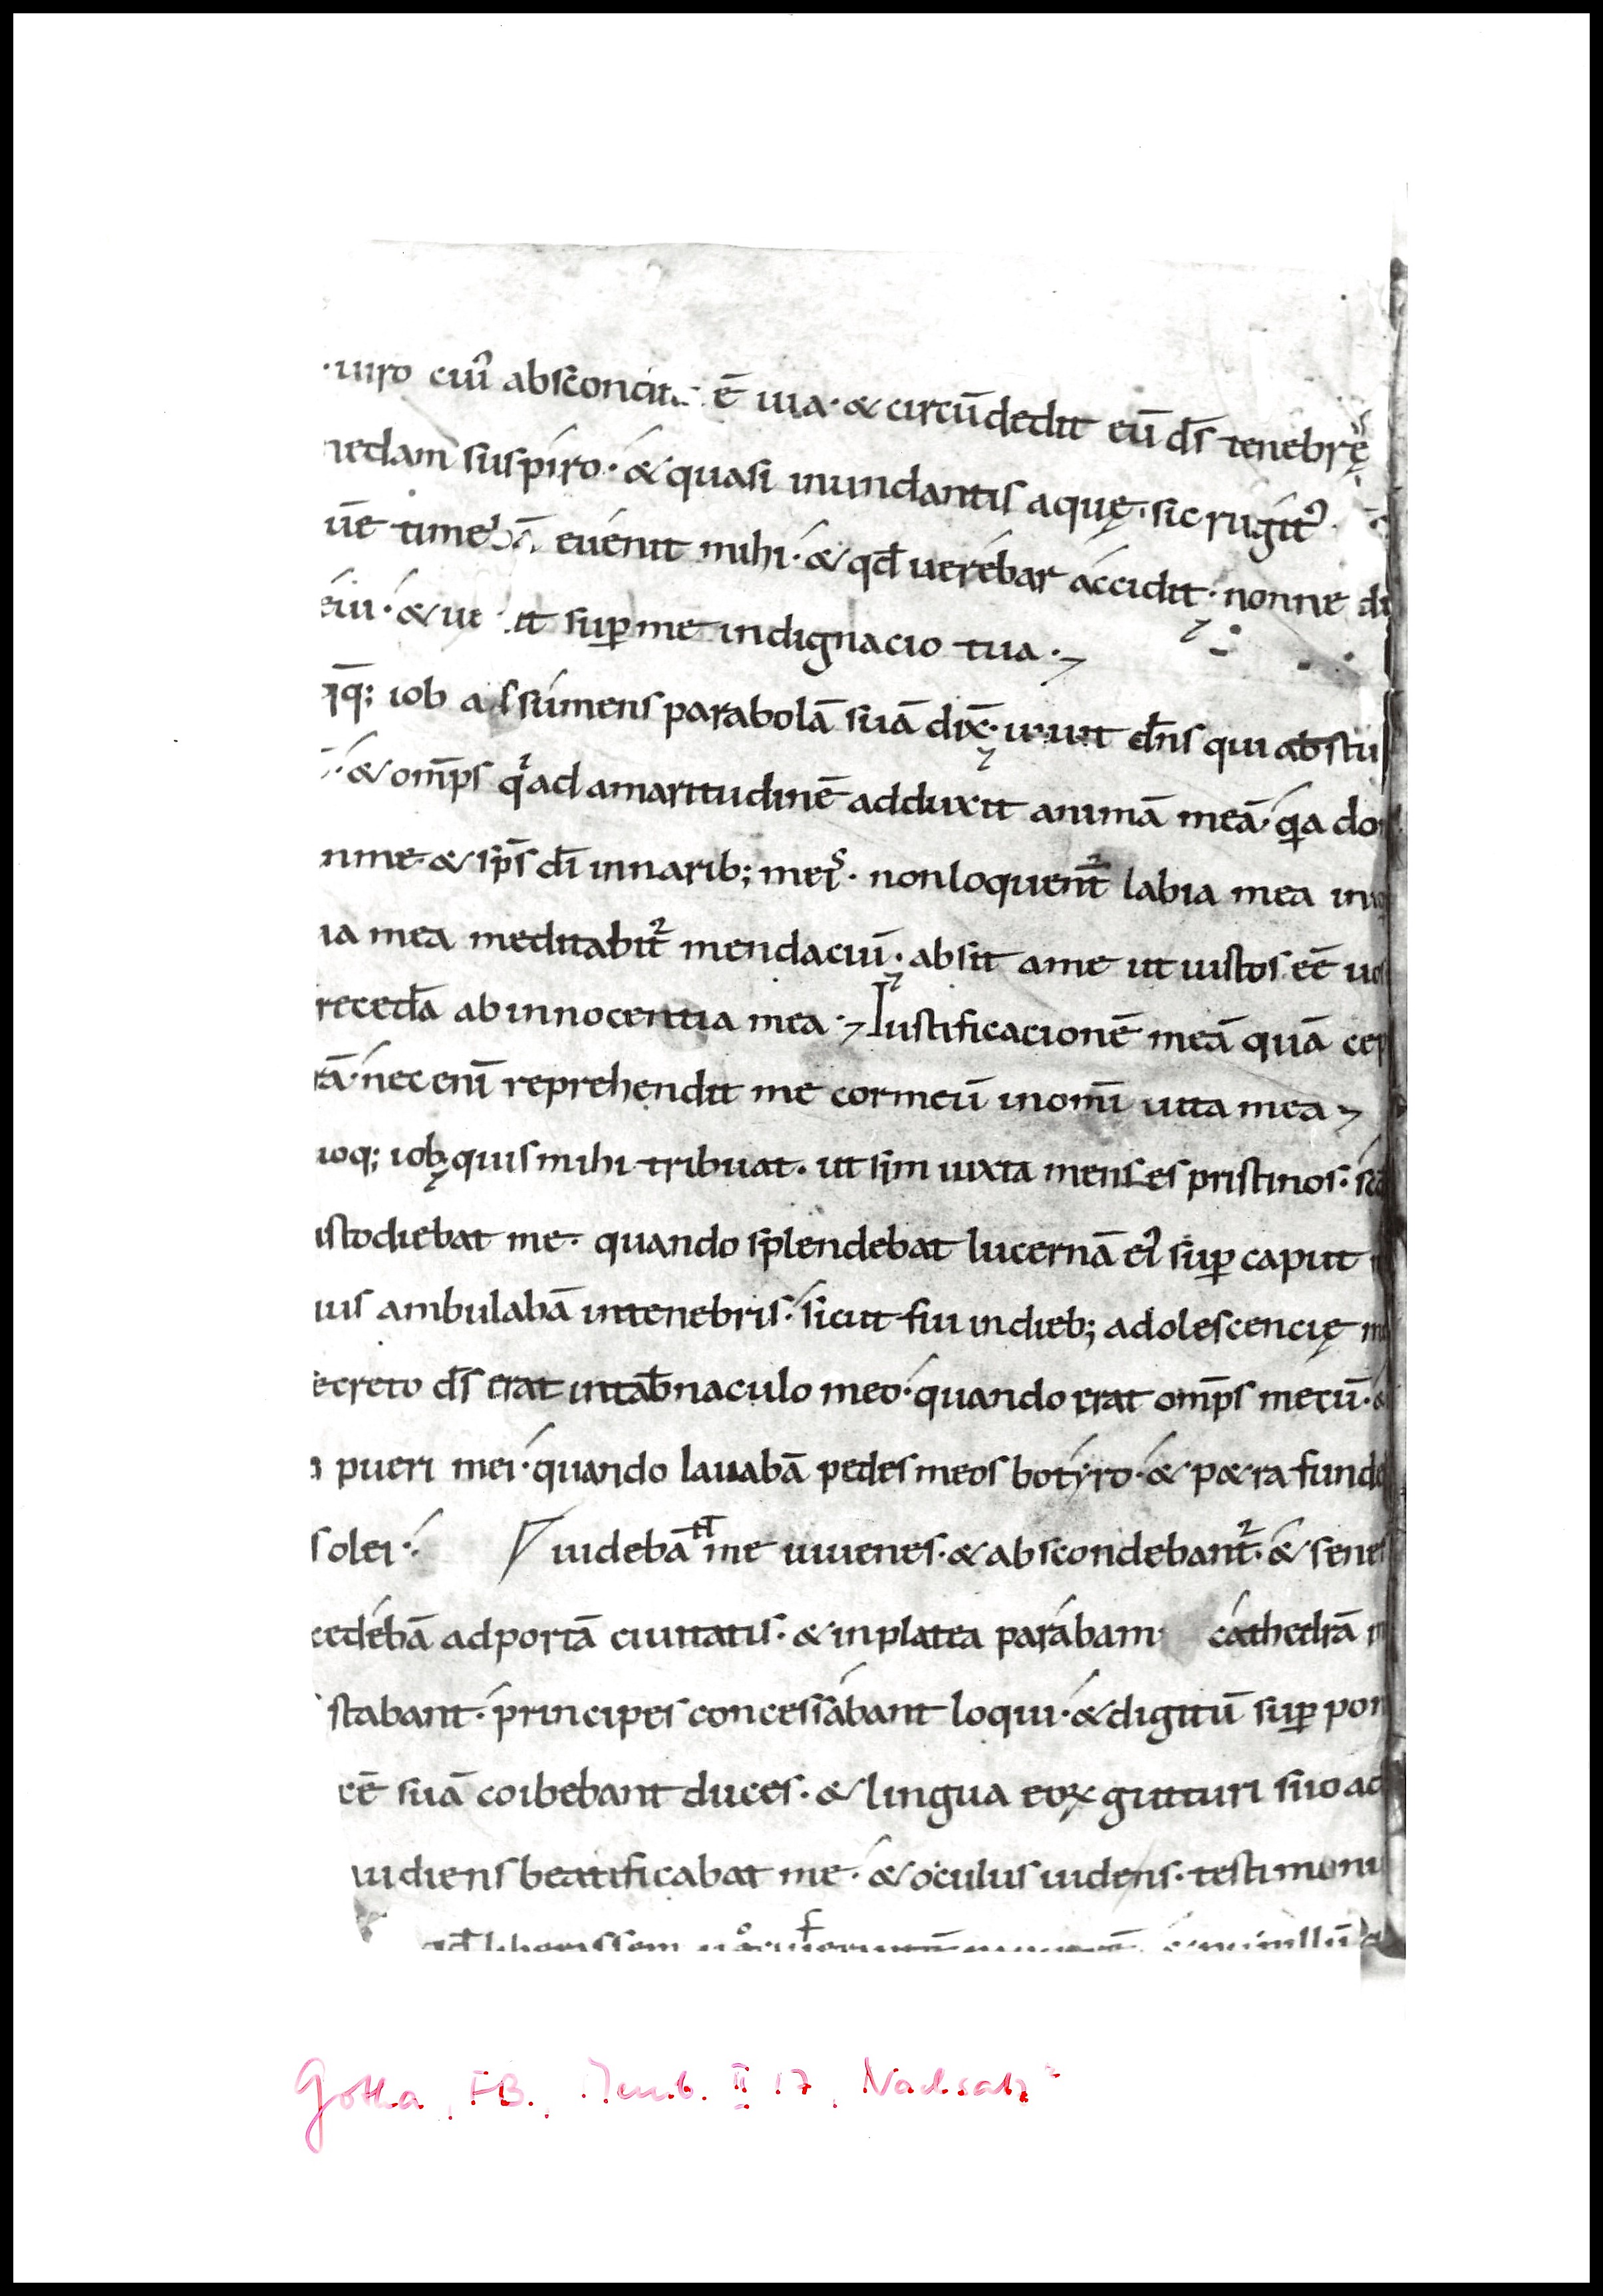 ·uiro cui᷒ absconcit ē uia· & circūdedit eū dſ tenebrę
nedam suspiro· & quasi inundantis aquę· sic rugit᷒·
ūe timebā euenit mihi· & qđ uerebar accidit· nonne di
eui· & ue it suꝑ me indignacio tua·
qq̄; iob assumens parabolā suā dix̄· uiuit dn̄s qui abstu
· & omp̄s qi ad amaritudinē adduxit animā meā· qa do
nme· & sp̄s dī innarib; meis· non loquent᷑ labia mea in
ia mea meditabit᷑ mendaciū· absit ame ut iustos eē uo
recedā ab innocentia mea· Iustificacionē meā quā cep
tā· nec enī reprehendit me cor meū in omī uita mea
uoq; iob· quis mihi tribuat· ut sim iuxta menses pristinos·
istodiebat me· quando splendebat lucernā ei᷒ suꝑ caput
ius ambulabā intenebris· sicut fui indieb; adolescencię m
ecreto dſ erat intab̄naculo meo· quando erat omp̄s mecū·
pueri mei· quando lauabā pedes meos botyro· & p&ra funde
s olei· uidebānt me iuuenes· & abscondebant᷑· & senes
cedebā ad portā ciuitatis· & in platea parabam cathedrā m
stabant· principes concessabant loqui· & digitū suꝑ pon
cē suā coibebant duces· & lingua eoꝝ gutturi suo ad
uidiens beatificabat me· & oculus uidens· testimoniu
qđ liberassem
Gotha, FB., Memb. II 17, Nachsatz